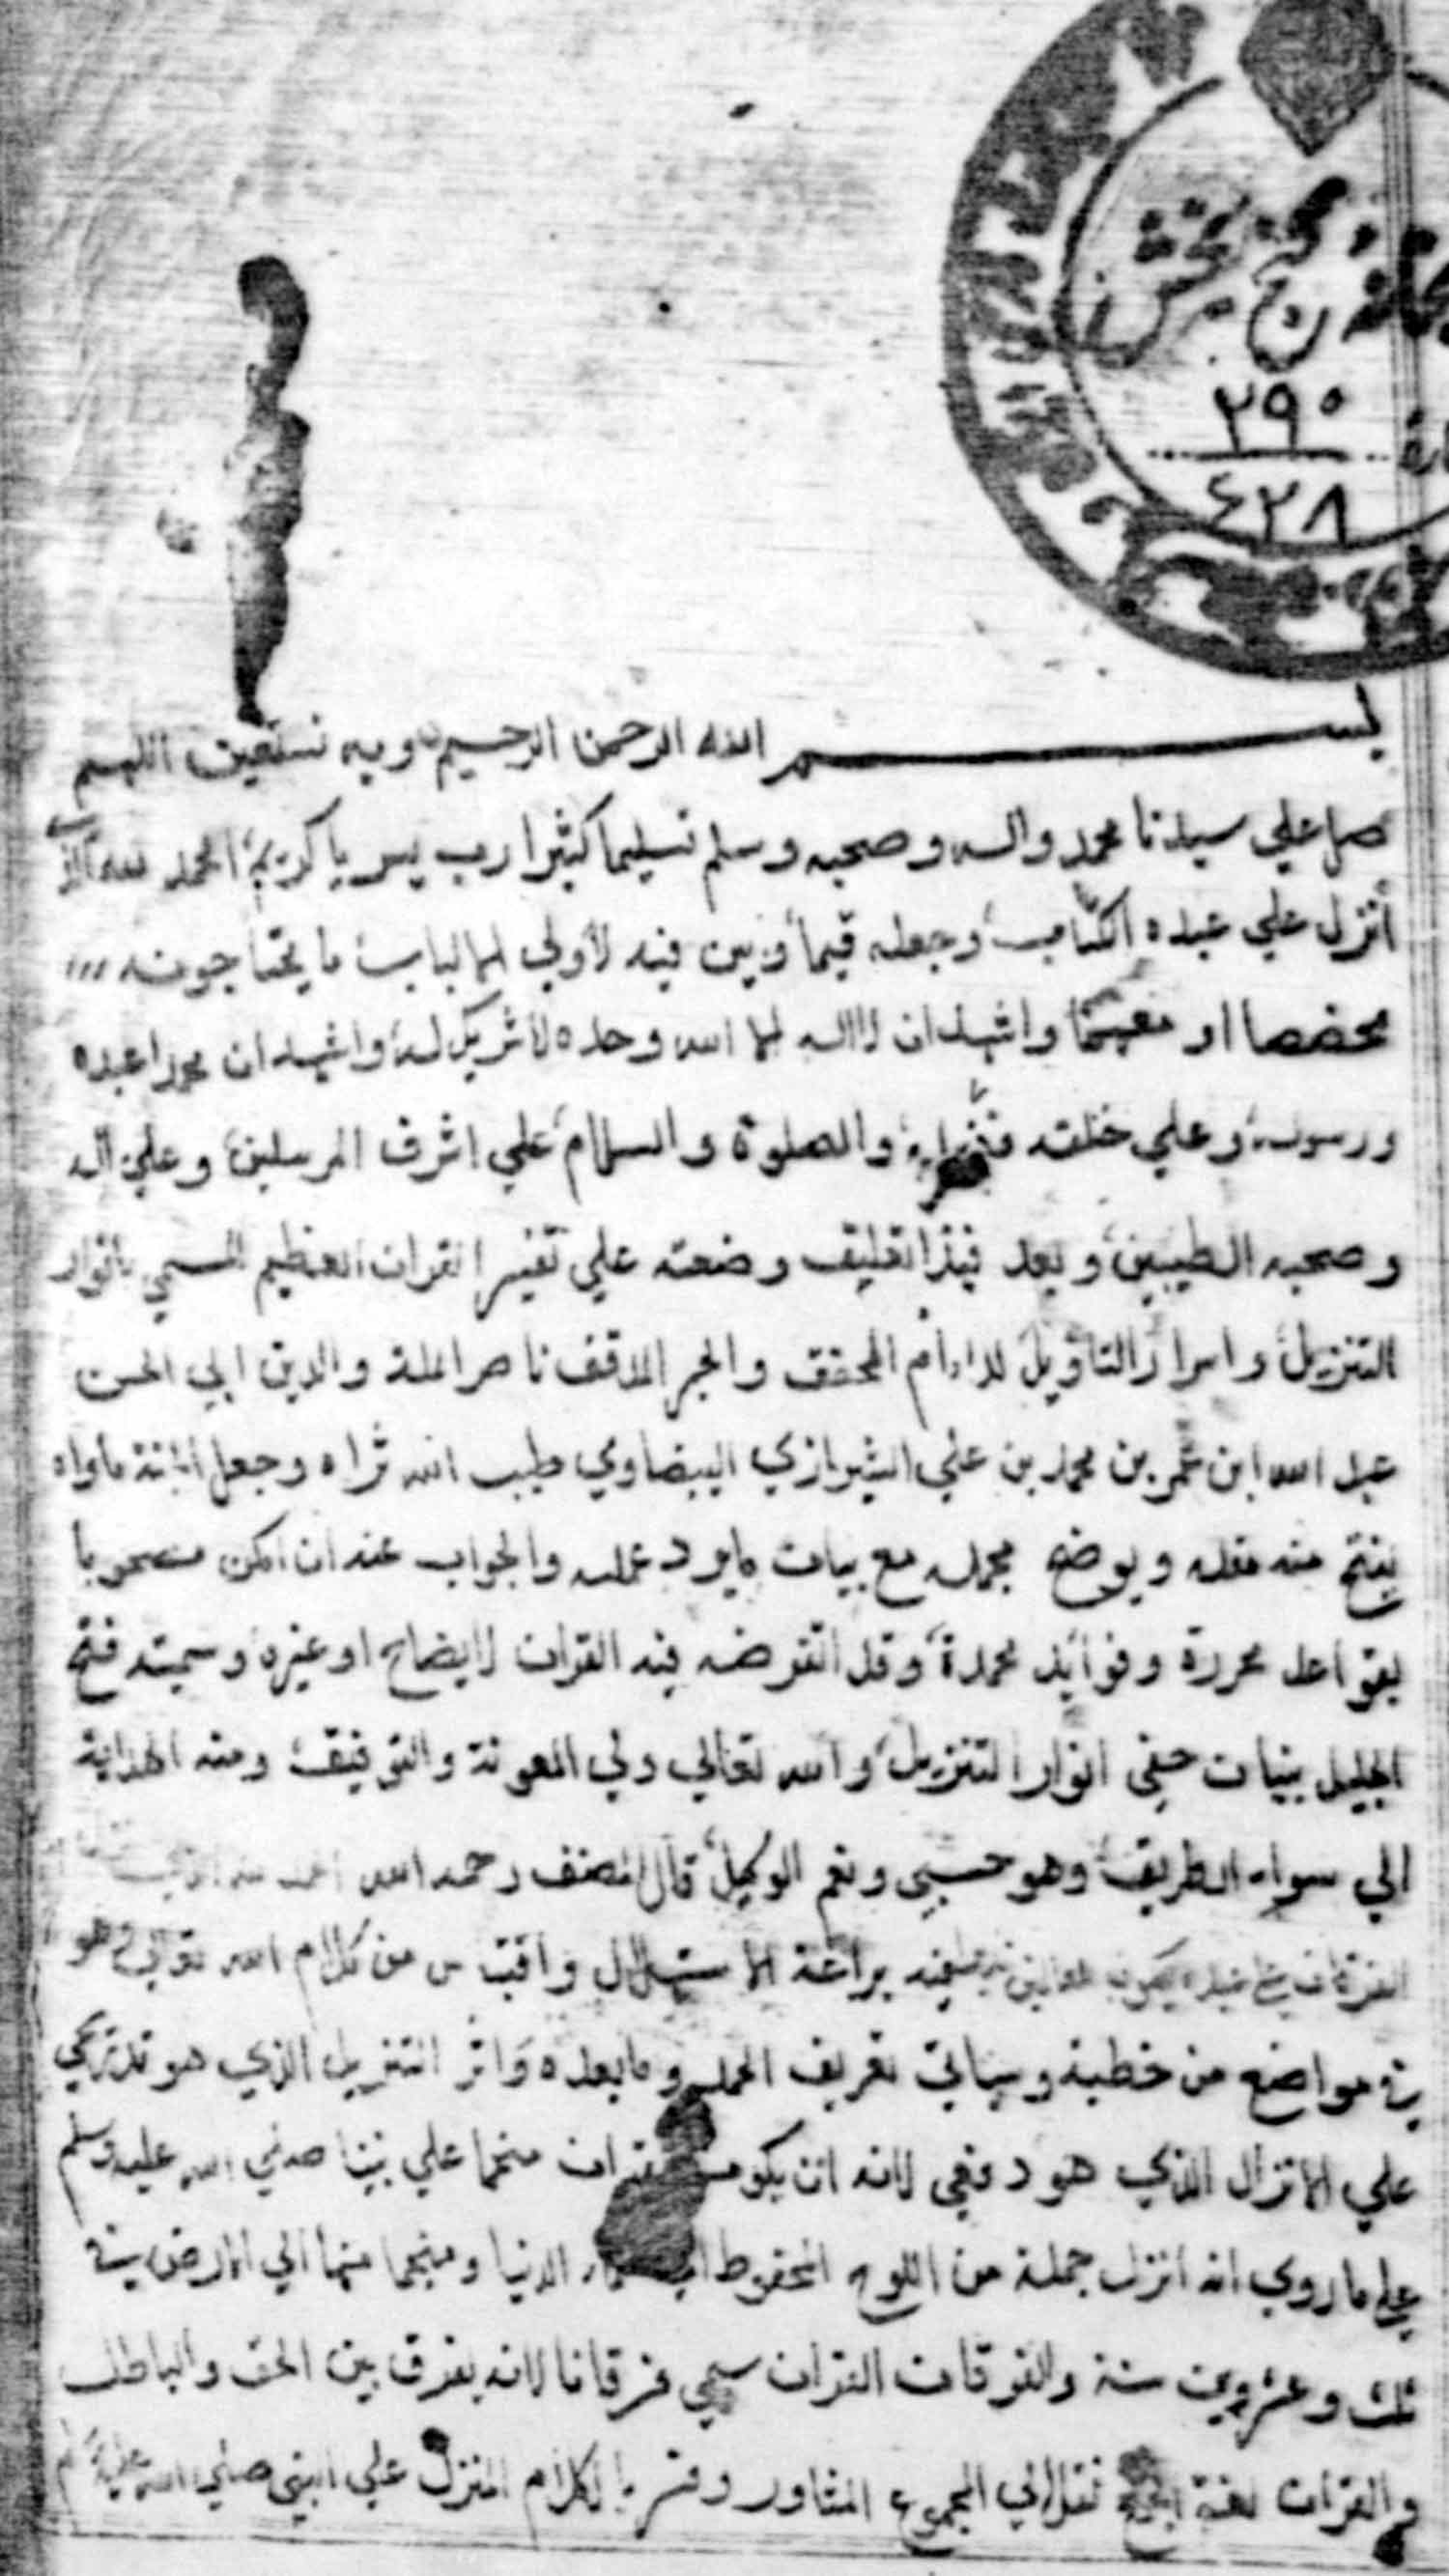 گنج بخش
٢٩٠
٤٢٨
بسم الله الرحمن الرحيم وبه نستعين اللهم
صل علي سيدنا محمد واله وصحبه وسلم تسليما كثيرا رب يسر يا كريم الحمد لله الذي
أنزل علي عبده الكتاب وجعله قيما وبين فيه لأولي الالباب ما يحتاجونه
مخصصا او معمما واشهد ان لا اله الا الله وحده لا شريك له واشهد ان محمدا عبده
ورسوله وعلي خلقه والصلوة والسلام علي اشرف المرسلين وعلي اله
وصحبه الطيبين وبعد فهذا تعليق وضعته علي تفسير القران العظيم المسمي بانوار
التنزيل واسرار التاويل للامام المحقق والحبر المدقق ناصر الملة والدين ابي الحسن
عبد الله ابن عمر بن محمد بن علي الشيرازي البيضاوي طيب الله ثراه وجعل الجنة ماواه
يفتح منه مقفله ويوضح مجمله مع بيان ما يرد عليه والجواب عنه ان امكن مصحوبا
بقواعد محررة وفوائد محمدة وقد اتعرض فيه القران لايضاح او غيره وسميته فتح
الجليل ببيان خفي انوار التنزيل والله تعالي ولي المعونة والتوفيق ومنه الهداية
الي سواء الطريق وهو حسبي ونعم الوكيل قال المصنف رحمه الله الحمد لله الذي
الفرقان علي عبده ليكون للعالمين فيه براعة الاستهلال واقتباس من كلام الله تعالي وهو
في مواضع من خطبة وسياتي تعريف الحمد وما بعده واثر التنزيل الذي هو تدريجي
علي الانزال الذي هو دفعي لانه ان يكون القران منجما علي نبينا صلي الله عليه وسلم
علي ما روي انه انزل جملة من اللوح المحفوظ الي سماء الدنيا ومنجما منها الي الارض في
ثلث وعشرين سنة والفرقان القران سمي فرقانا لانه يفرق بين الحق والباطل
والقران لغة الجمع نقل الي المجموع وفسر بالكلام المنزل علي النبي صلي الله عليه وسلم